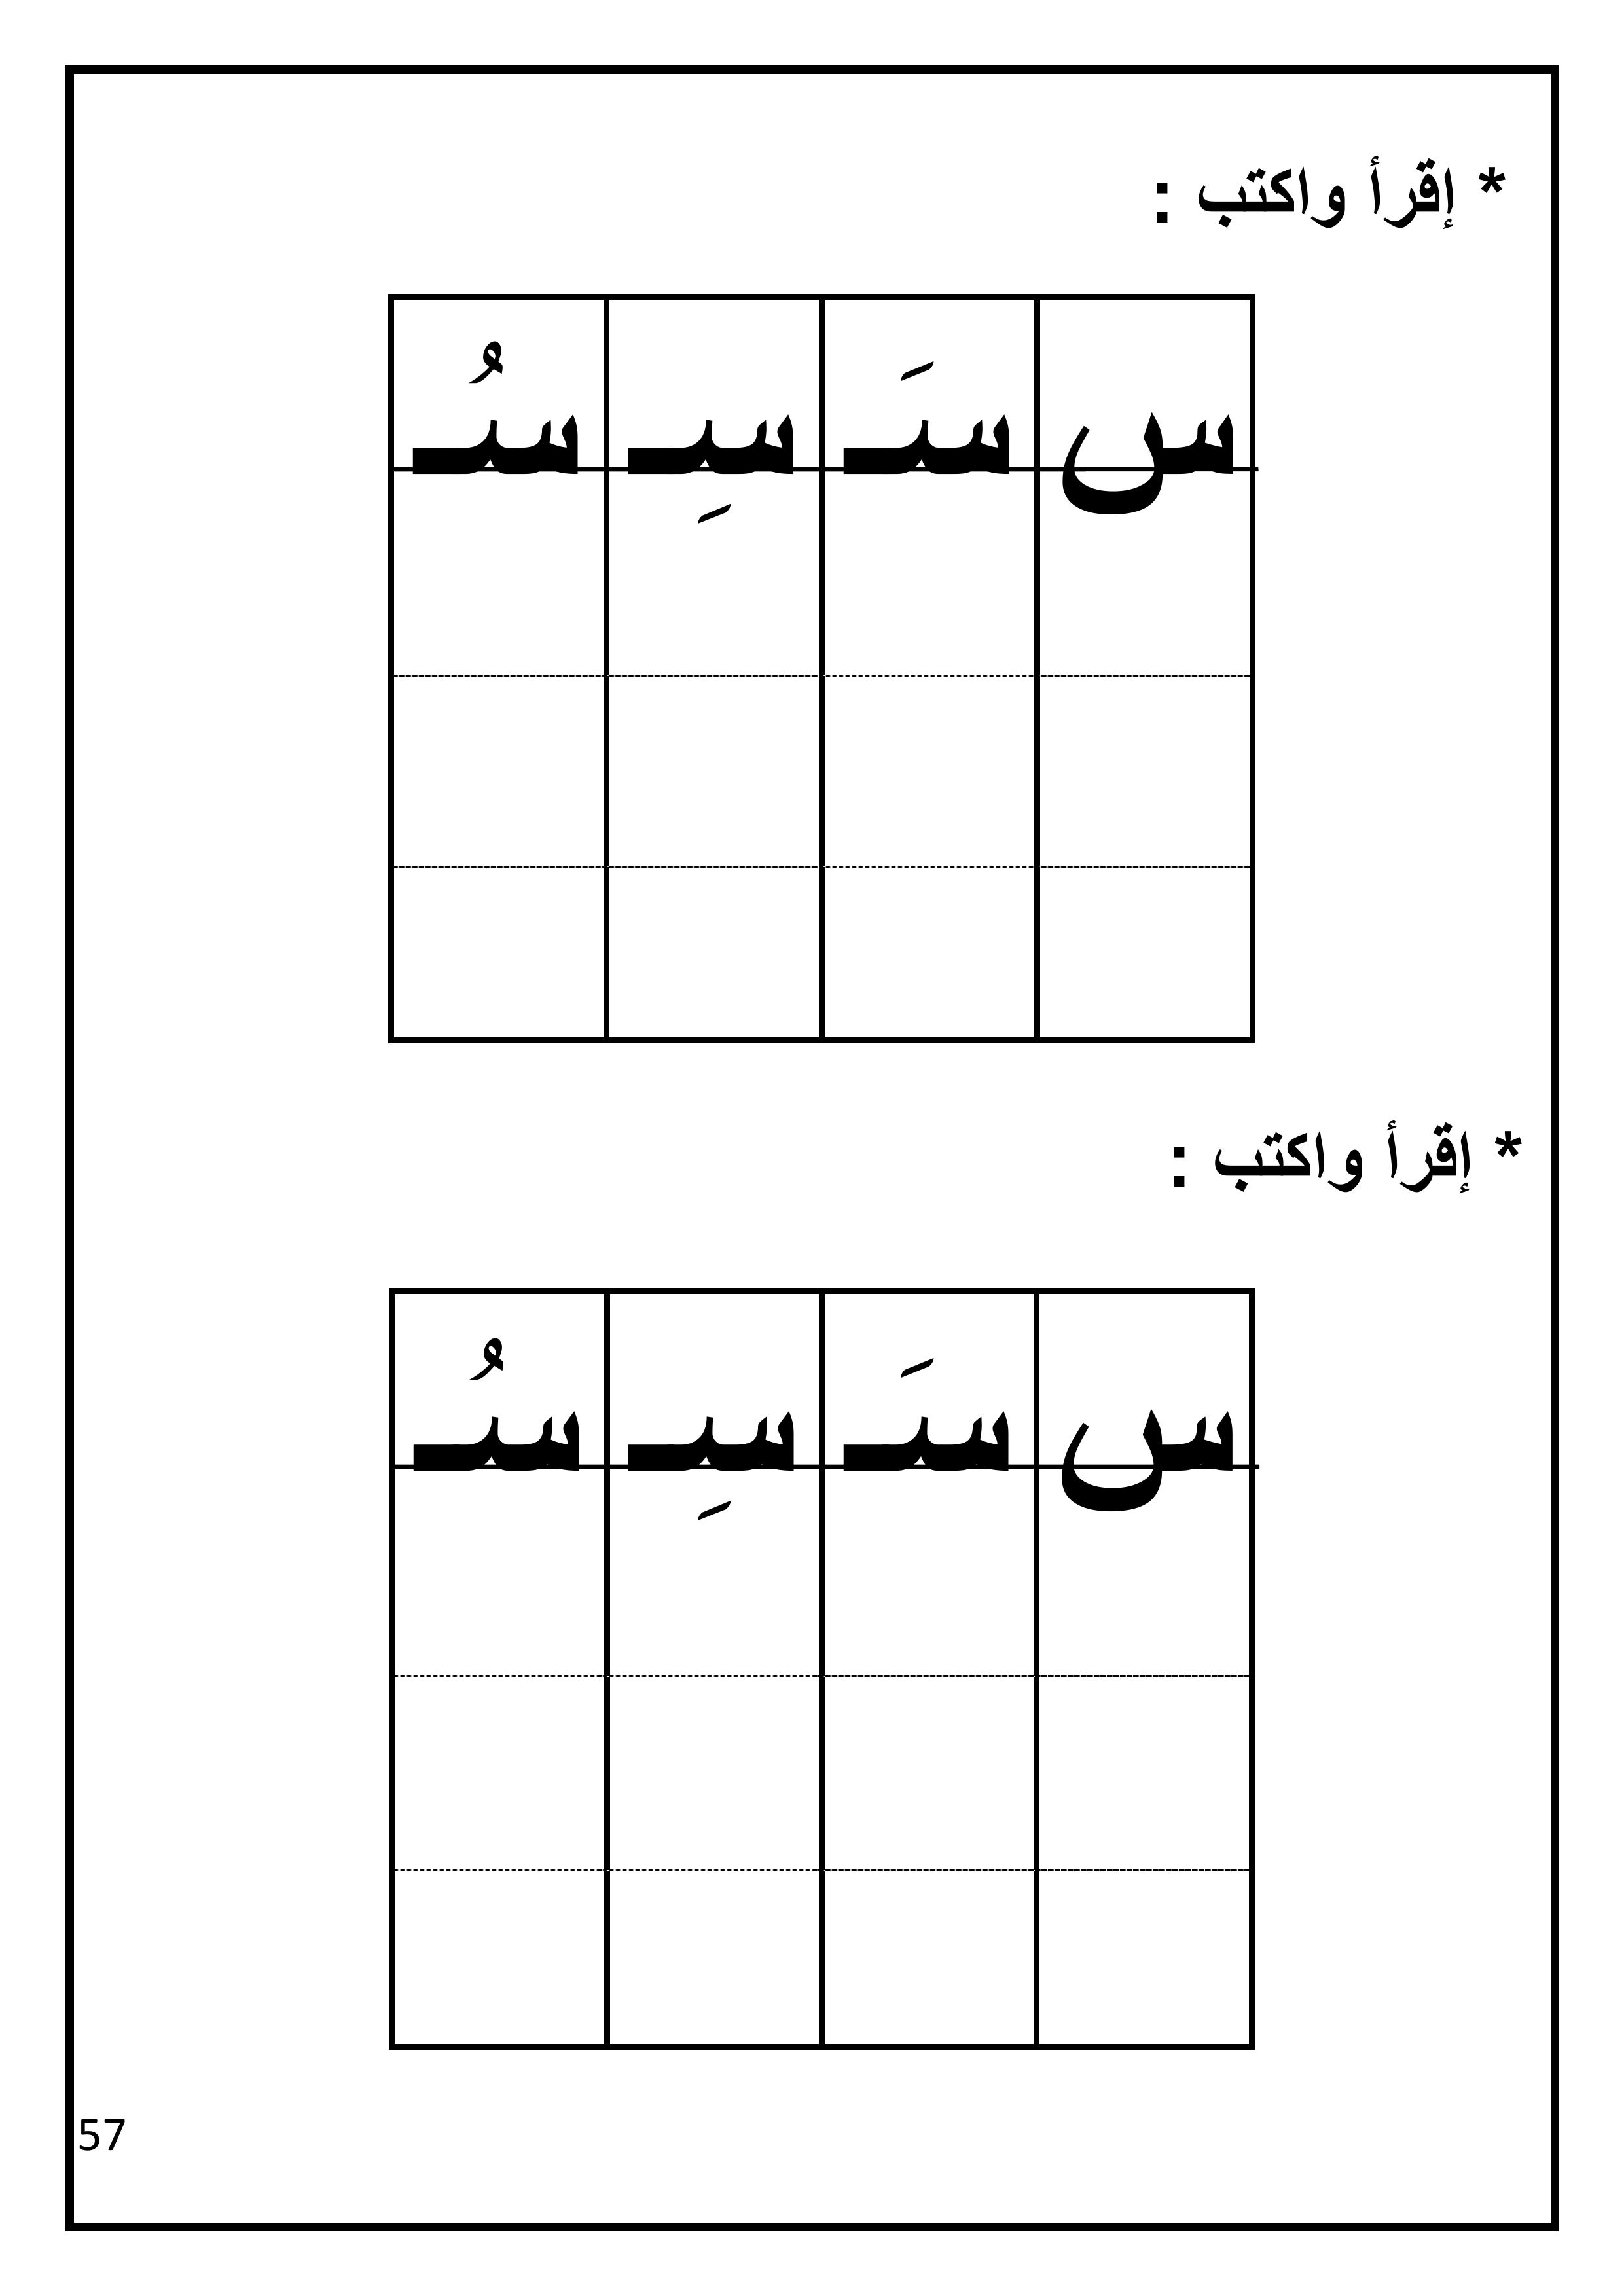 * إقرأ واكتب :
س سَـ سِـ سُـ
* إقرأ واكتب :
س سَـ سِـ سُـ
57